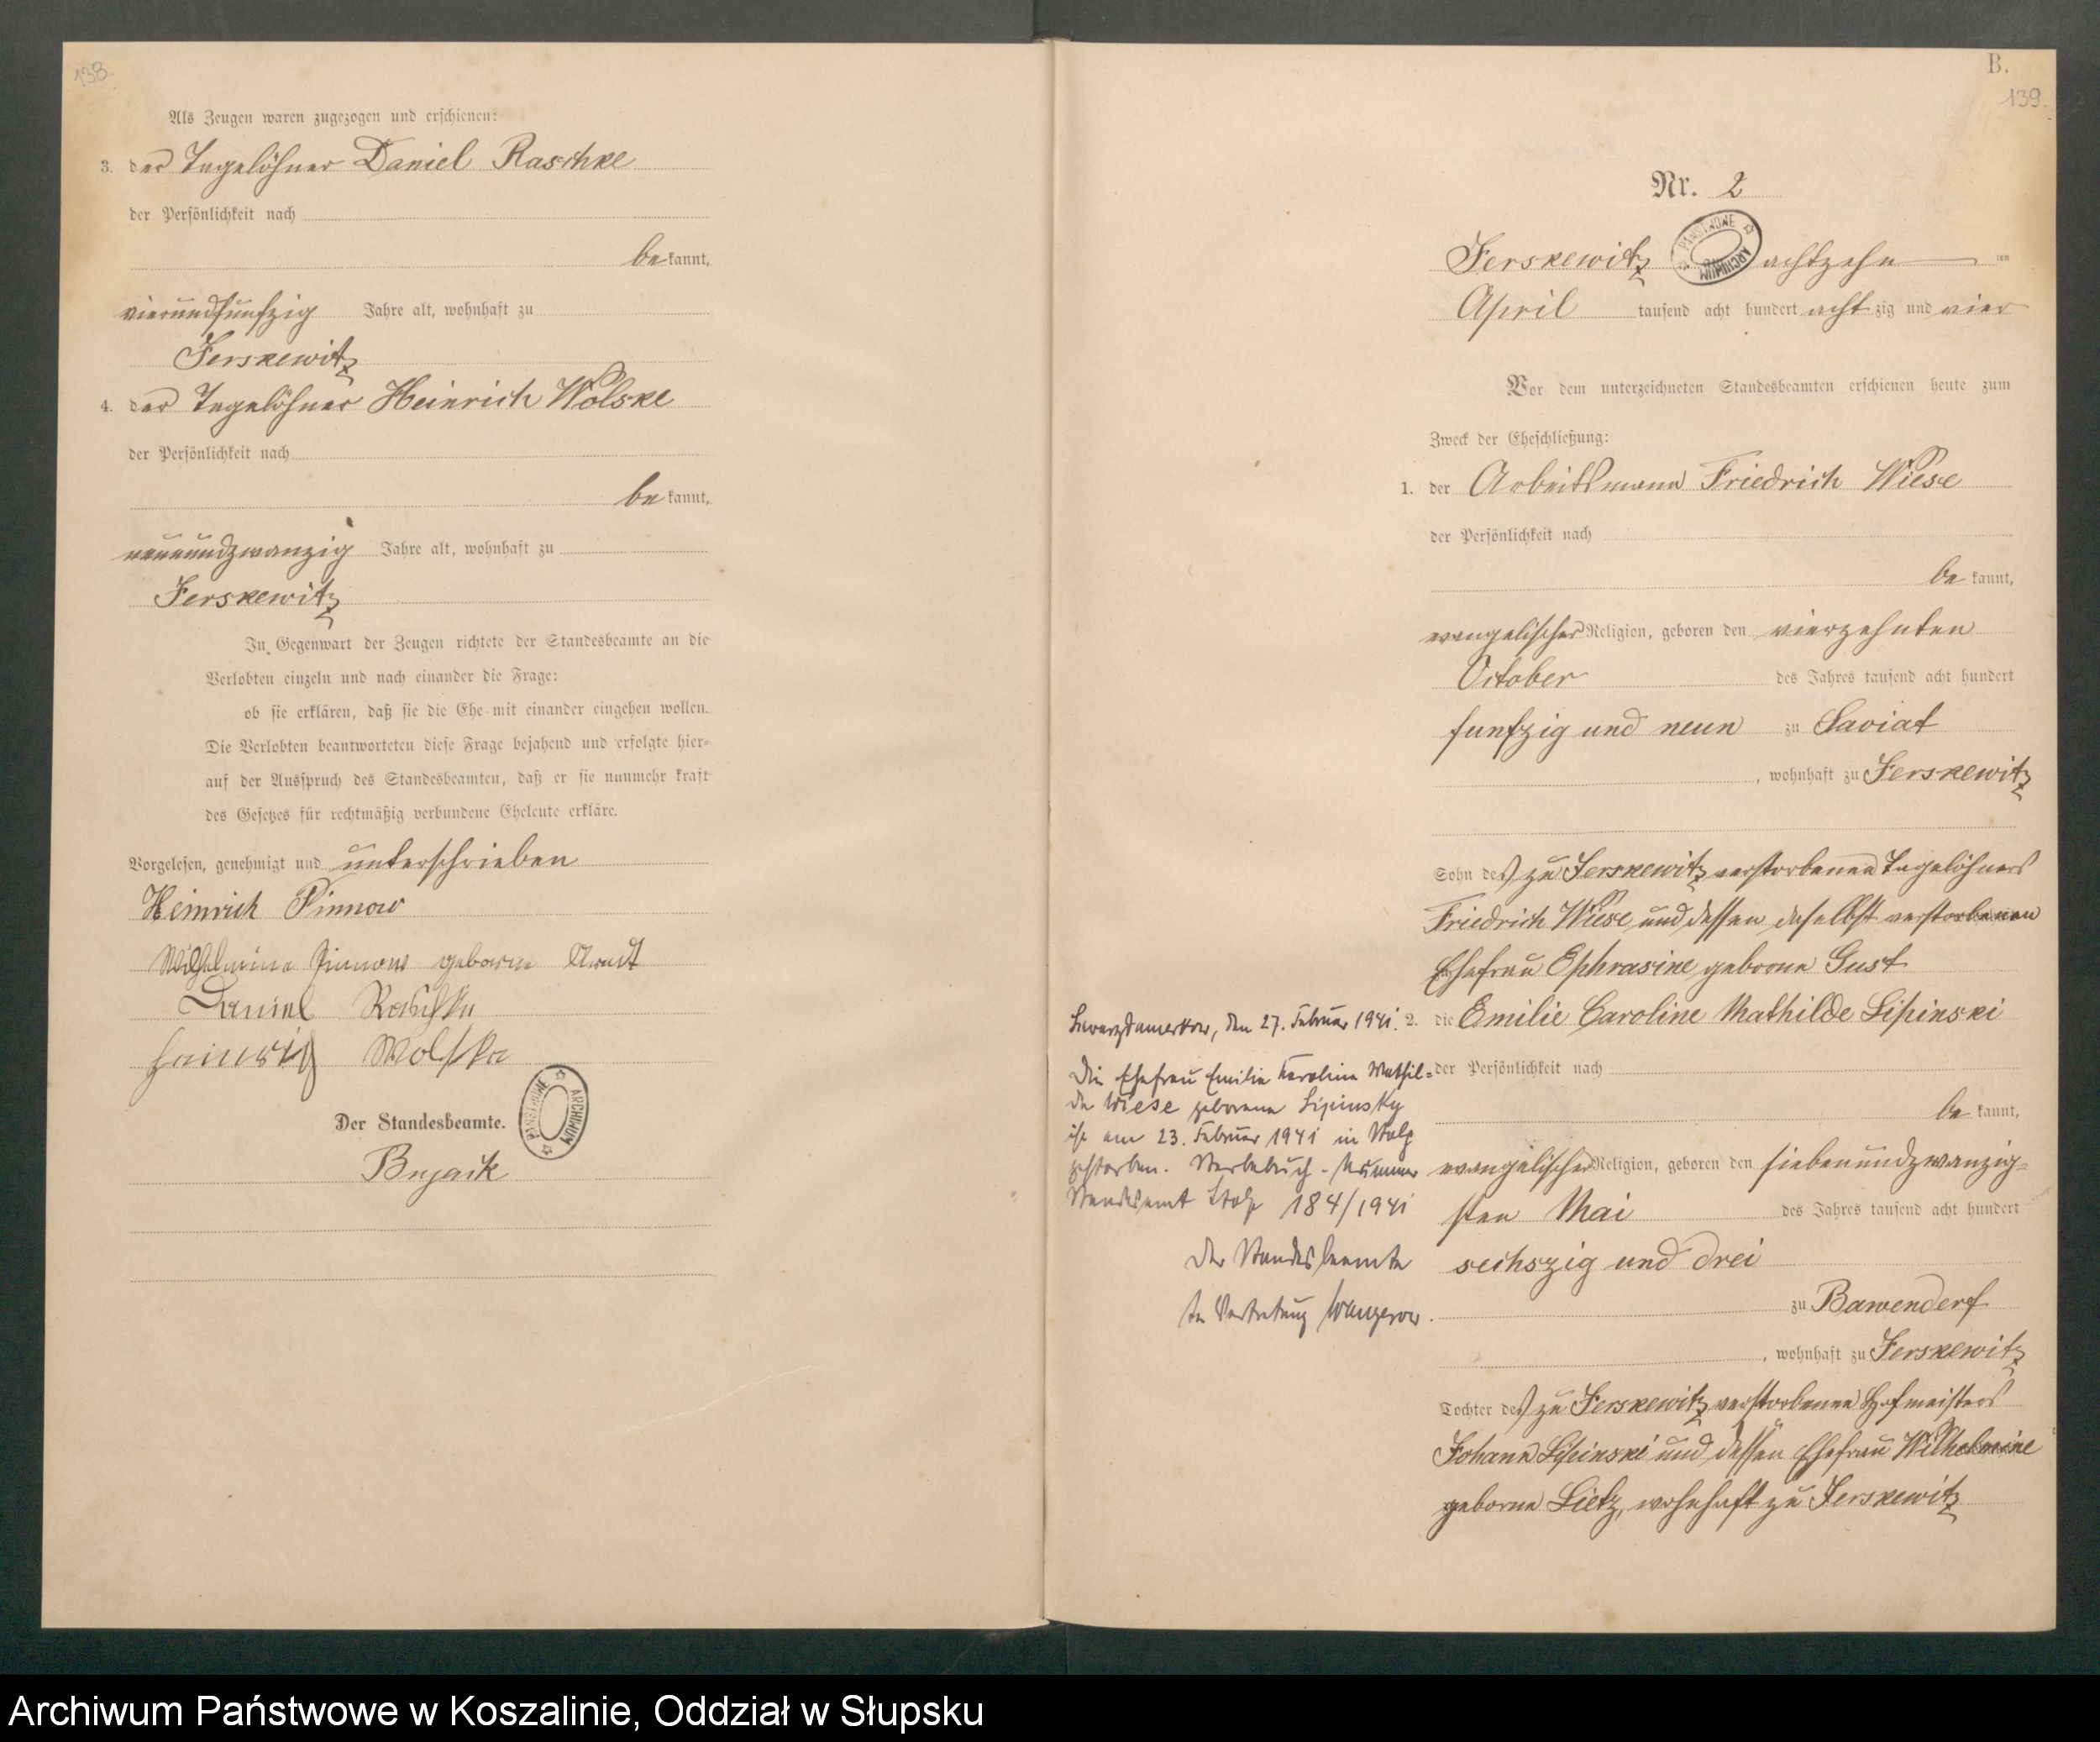 138.
Als Zeugen waren zugezogen und erschienen:
3. der Tagelöhner Daniel Raschke
der Persönlichkeit nach
bekannt,
vierundfunfzig Jahre alt, wohnhaft zu
Jerskewitz
4. der Tagelöhner Heinrich Wolske
der Persönlichkeit nach
bekannt,
neunundzwanzig Jahre alt, wohnhaft zu
Jerskewitz
In Gegenwart der Zeugen richtete der Standesbeamte an die
Verlobten einzeln und nach einander die Frage:
ob sie erklären, daß sie die Ehe mit einander eingehen wollen.
Die Verlobten beantworteten diese Frage bejahend und erfolgte hier-
auf der Ausspruch des Standesbeamten, daß er sie nunmehr kraft
des Gesetzes für rechtmäßig verbundene Eheleute erkläre.
Vorgelesen, genehmigt und unterschrieben
Heinrich Pinnow
Wilhelmine Pinnow geborne Arndt
Daniel Raschke
Heinrich Wolske
ARCHIWUM PAŃSTWOWE
Der Standesbeamte.
Bujack
B.
139.
Nr. 2
Jerskewitz achtzehn ten
ARCHIWUM PAŃSTWOWE
April tausend acht hundert achtzig und vier
Vor dem unterzeichneten Standesbeamten erschienen heute zum
Zweck der Eheschließung:
1. der Arbeitsmann Friedrich Wiese
der Persönlichkeit nach
bekannt,
evangelischer Religion, geboren den vierzehnten
October des Jahres tausend acht hundert
funfzig und neun zu Saviat
, wohnhaft zu Jerskewitz
Sohn des zu Jerskewitz verstorbenen Tagelöhners
Friedrich Wiese und dessen daselbst verstorbenen
Ehefrau Ephrasine geborne Gust
2. die Emilie Caroline Mathilde Lipinski
der Persönlichkeit nach
bekannt,
evangelischer Religion, geboren den siebenundzwanzig-
sten Mai des Jahres tausend acht hundert
sechszig und drei
zu Bawenderf
, wohnhaft zu Jerskewitz
Tochter des zu Jerskewitz verstorbenen Hofmeisters
Johann Lipinski und dessen Ehefrau Wilhelmine
geborne Lietz, wohnhaft zu Jerskewitz
Schwarzdamerkow, den 27. Februar 1941.
Die Ehefrau Emilie Karoline Mathil-
de Wiese geborene Lipinsky
ist am 23. Februar 1941 in Stolp
gestorben. Sterbebuch-Nummer
Standesamt Stolp 184/1941
Der Standesbeamte
In Vertretung Wangerow.
Archiwum Państwowe w Koszalinie, Oddział w Słupsku